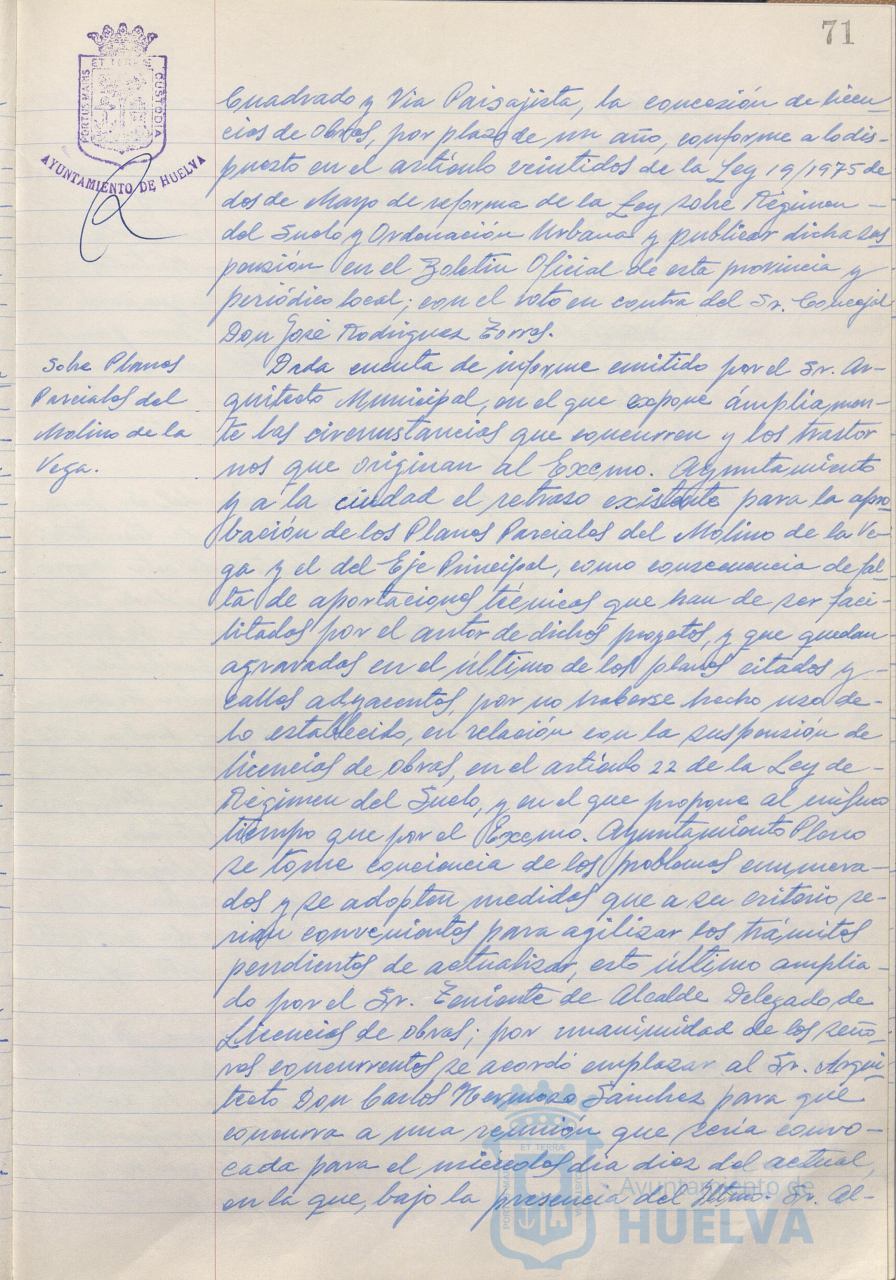 71
ET TERRÆ
PORTUS MARIS
CUSTODIA
AYUNTAMIENTO DE HUELVA
Cuadrado y Via Paisajista, la concesión de licen-
cias de obras, por plazo de un año, conforme a lo dis-
puesto en el artículo veintidos de la Ley 19/1975 de
dos de Mayo de reforma de la Ley sobre Régimen -
del Suelo y Ordenación Urbana y publicar dicha sus
pensión en el Boletin Oficial de esta provincia y
periódico local; con el voto en contra del Sr. Concejal
Don José Rodriguez Torres.
Sobre Planos
Parciales del
Molino de la
Vega.
Dada cuenta de informe emitido por el Sr. Ar-
quitecto Municipal, en el que expone ámpliamen-
te las circunstancias que concurren y los trastor
nos que originan al Excmo. Ayuntamiento
y a la ciudad el retraso existente para la apro-
bación de los Planos Parciales del Molino de la Ve-
ga y el del Eje Principal, como consecuencia de fal-
ta de aportaciones técnicas que han de ser faci-
litadas por el autor de dichos proyetos, y que quedan
agravados en el último de los planos citados y -
calles adyacentes, por no haberse hecho uso de-
lo establecido, en relación con la suspensión de
licencias de obras, en el artículo 22 de la Ley de-
Régimen del Suelo, y en el que propone al mismo
tiempo que por el Excmo. Ayuntamiento Pleno
se tome conciencia de los problemas enumera-
dos y se adopten medidas que a su criterio se-
rian convenientes para agilizar los trámites
pendientes de actualizar, esto último amplia-
do por el Sr. Teniente de Alcalde Delegado de
Licencias de obras; por unanimidad de los seño-
res concurrentes se acordó emplazar al Sr. Arqui-
tecto Don Carlos Hermoso Sánchez para que
concurra a una reunión que sería convo-
cada para el miercoles dia diez del actual,
en la que, bajo la presencia del Iltmo. Sr. Al-
ET TERRÆ
Ayuntamiento de
HUELVA